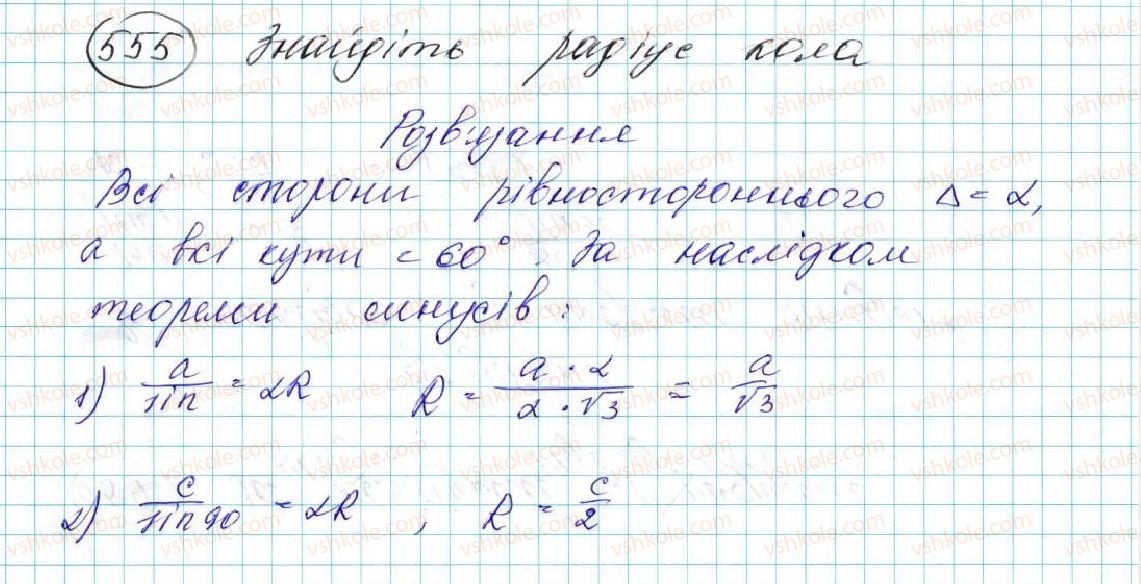 555 Знайдіть радіус кола
Розв'язання
Всі сторони рівностороннього Δ = α,
а всі кути = 60°. За наслідком
теореми синусів:
1) a/sin = 2R R = a · 2/2 · √3 = a/√3
2) c/sin 90 = 2R, R = c/2